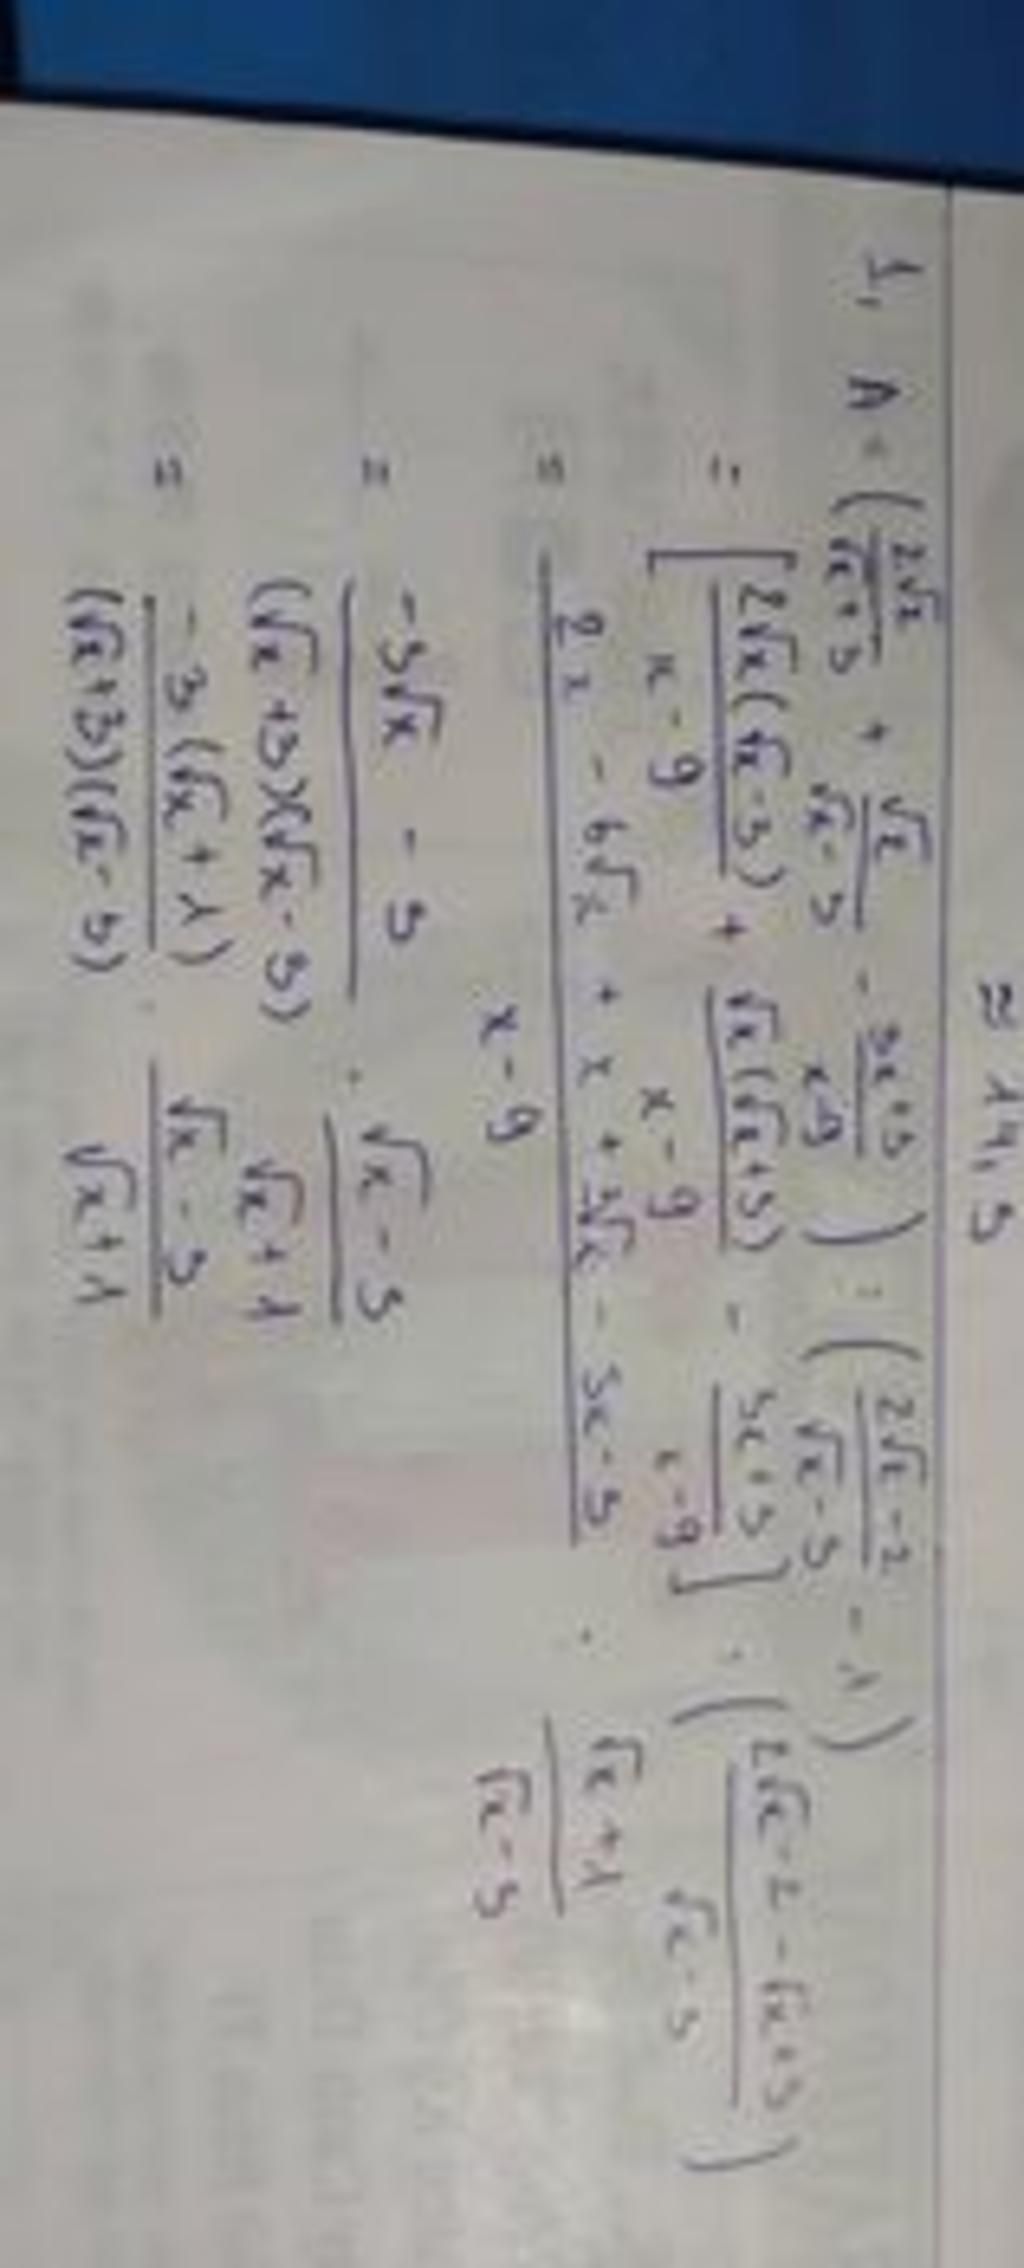 ≈ 14,3
1, A = (2√x/(√x+3) + √x/(√x-3) - (3x+3)/(x-9)) : ((2√x-2)/(√x-3) - 1)
= [2√x(√x-3)/(x-9) + √x(√x+3)/(x-9) - (3x+3)/(x-9)] : ((2√x-2-√x+3)/(√x-3))
= (2x - 6√x + x + 3√x - 3x - 3)/(x-9) : (√x+1)/(√x-3)
= (-3√x - 3)/((√x+3)(√x-3)) . (√x-3)/(√x+1)
= -3(√x+1)/((√x+3)(√x-3)) . (√x-3)/(√x+1)